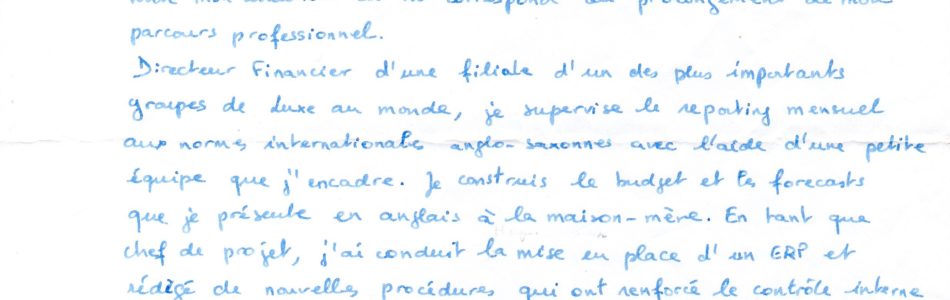 parcours professionnel.
Directeur Financier d'une filiale d'un des plus importants
groupes de luxe au monde, je supervise le reporting mensuel
aux normes internationales anglo-saxonnes avec l'aide d'une petite
équipe que j'encadre. Je construis le budget et les forecasts
que je présente en anglais à la maison-mère. En tant que
chef de projet, j'ai conduit la mise en place d'un ERP et
rédigé de nouvelles procédures qui ont renforcé le contrôle interne